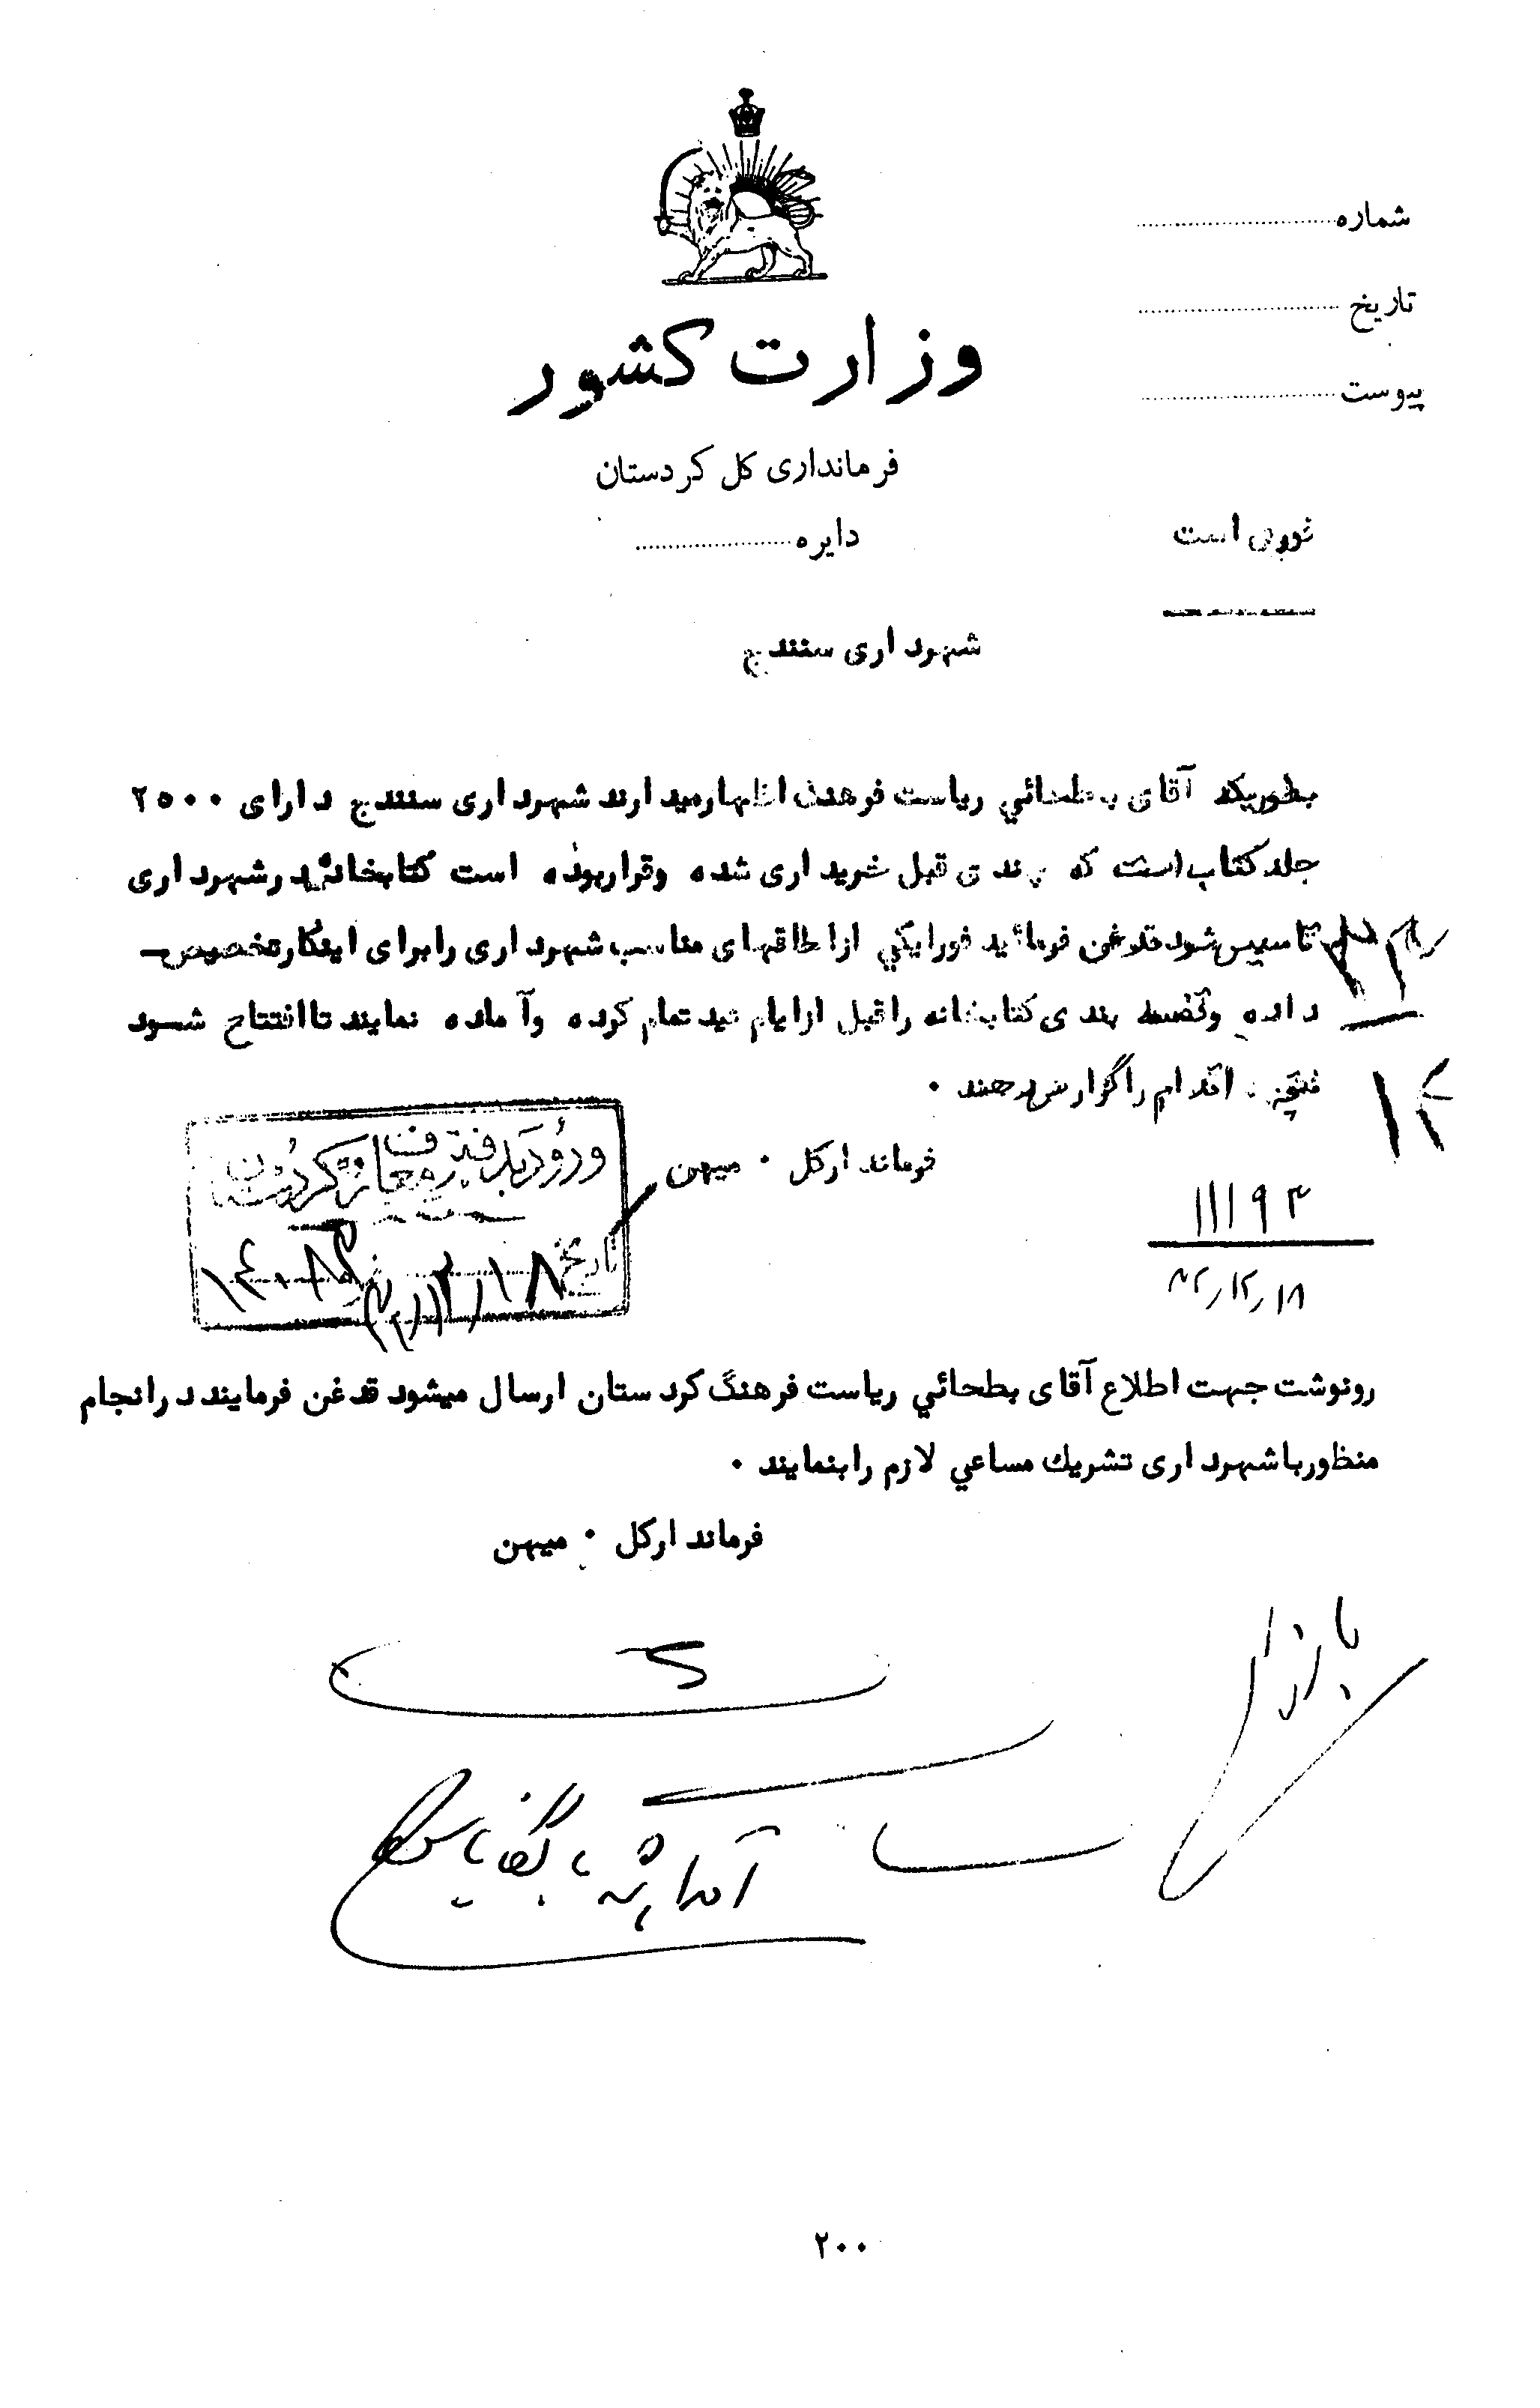 شماره
تاریخ
پیوست
وزارت کشور
فرمانداری کل کردستان
دایره
فوری است
شهرداری سنندج
بطوریکه آقای بطحائي ریاست فرهنگ اظهارمیدارند شهرداری سنندج دارای ۲۵۰۰
جلدکتاب است که چندی قبل خریداری شده وقراربوده است کتابخانه درشهرداری
تاسیس شود قدغن فرمائید فورایکي ازاطاقهای مناسب شهرداری رابرای اینکارتخصیص
داده وقفسه بندی کتابخانه راقبل ازایام عید تمام کرده وآماده نمایند تاافتتاح شود
نتیجه اقدام راگزارش دهند ۰
فرماندارکل ۰ میهن
ورود بدفتر فرهنگ کردستان
تاریخ ۱۸/۱۲/
۱۱۱۹۳
۴۲/۱۲/۱۸
رونوشت جهت اطلاع آقای بطحائي ریاست فرهنگ کردستان ارسال میشود قدغن فرمایند درانجام
منظورباشهرداری تشریك مساعي لازم رابنمایند ۰
فرماندارکل ۰ میهن
۲۰۰